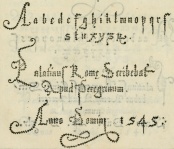 Aabcdefghiklmnopqrs
stuxyzæ.
Palatinus Rome Scribebat
Apud Peregrinum.
Anno Domini 1545.